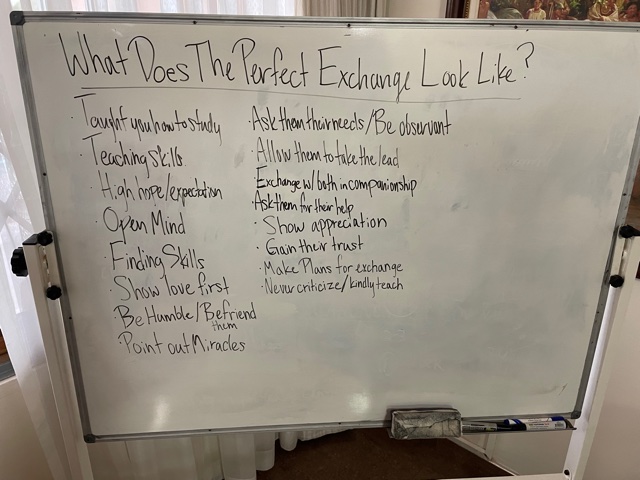 What Does The Perfect Exchange Look Like?
· Taught you how to study
· Teaching Skills
· High hope/expectation
· Open Mind
· Finding Skills
· Show love first
· Be Humble/Befriend
them
· Point out Miracles
· Ask them their needs/Be observant
· Allow them to take the lead
· Exchange w/both in companionship
· Ask them for their help
· Show appreciation
· Gain their trust
· Make Plans for exchange
· Never criticize/kindly teach